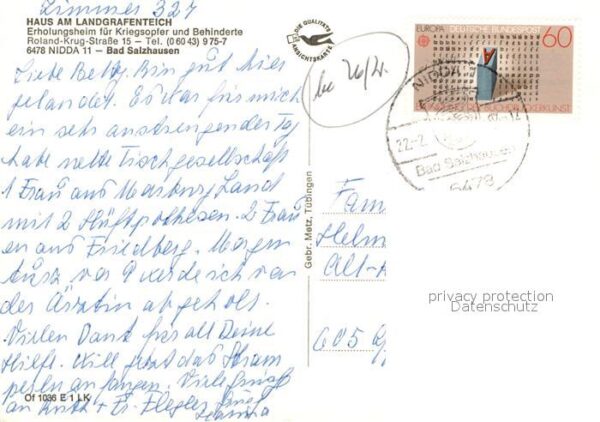 Zimmer 327
HAUS AM LANDGRAFENTEICH
Erholungsheim für Kriegsopfer und Behinderte
Roland-Krug-Straße 15 – Tel. (0 60 43) 9 75-7
6478 NIDDA 11 – Bad Salzhausen
DIE QUALITÄTS
ANSICHTSKARTE
EUROPA DEUTSCHE BUNDESPOST 60
BUCHDRUCKERKUNST
NIDDA
22.-2.
Bad Salzhausen
6478
be 26/2.
Liebe Bin gut hier
gelandet. Es war für mich
ein sehr anstrengender Tag
habe nette Tischgesellschaft
1 Frau aus Marburg Land
mit 2 2 Frau
en aus Friedberg. Morgen
kurz vor 9 werde ich von
der Ärztin abgeholt.
Vielen Dank für all Deine
Hilfe. Will jetzt das
Viele
an
Gebr. Metz, Tübingen
Fam
Helm
Alt-
605
privacy protection
Datenschutz
Of 1036 E 1 LK